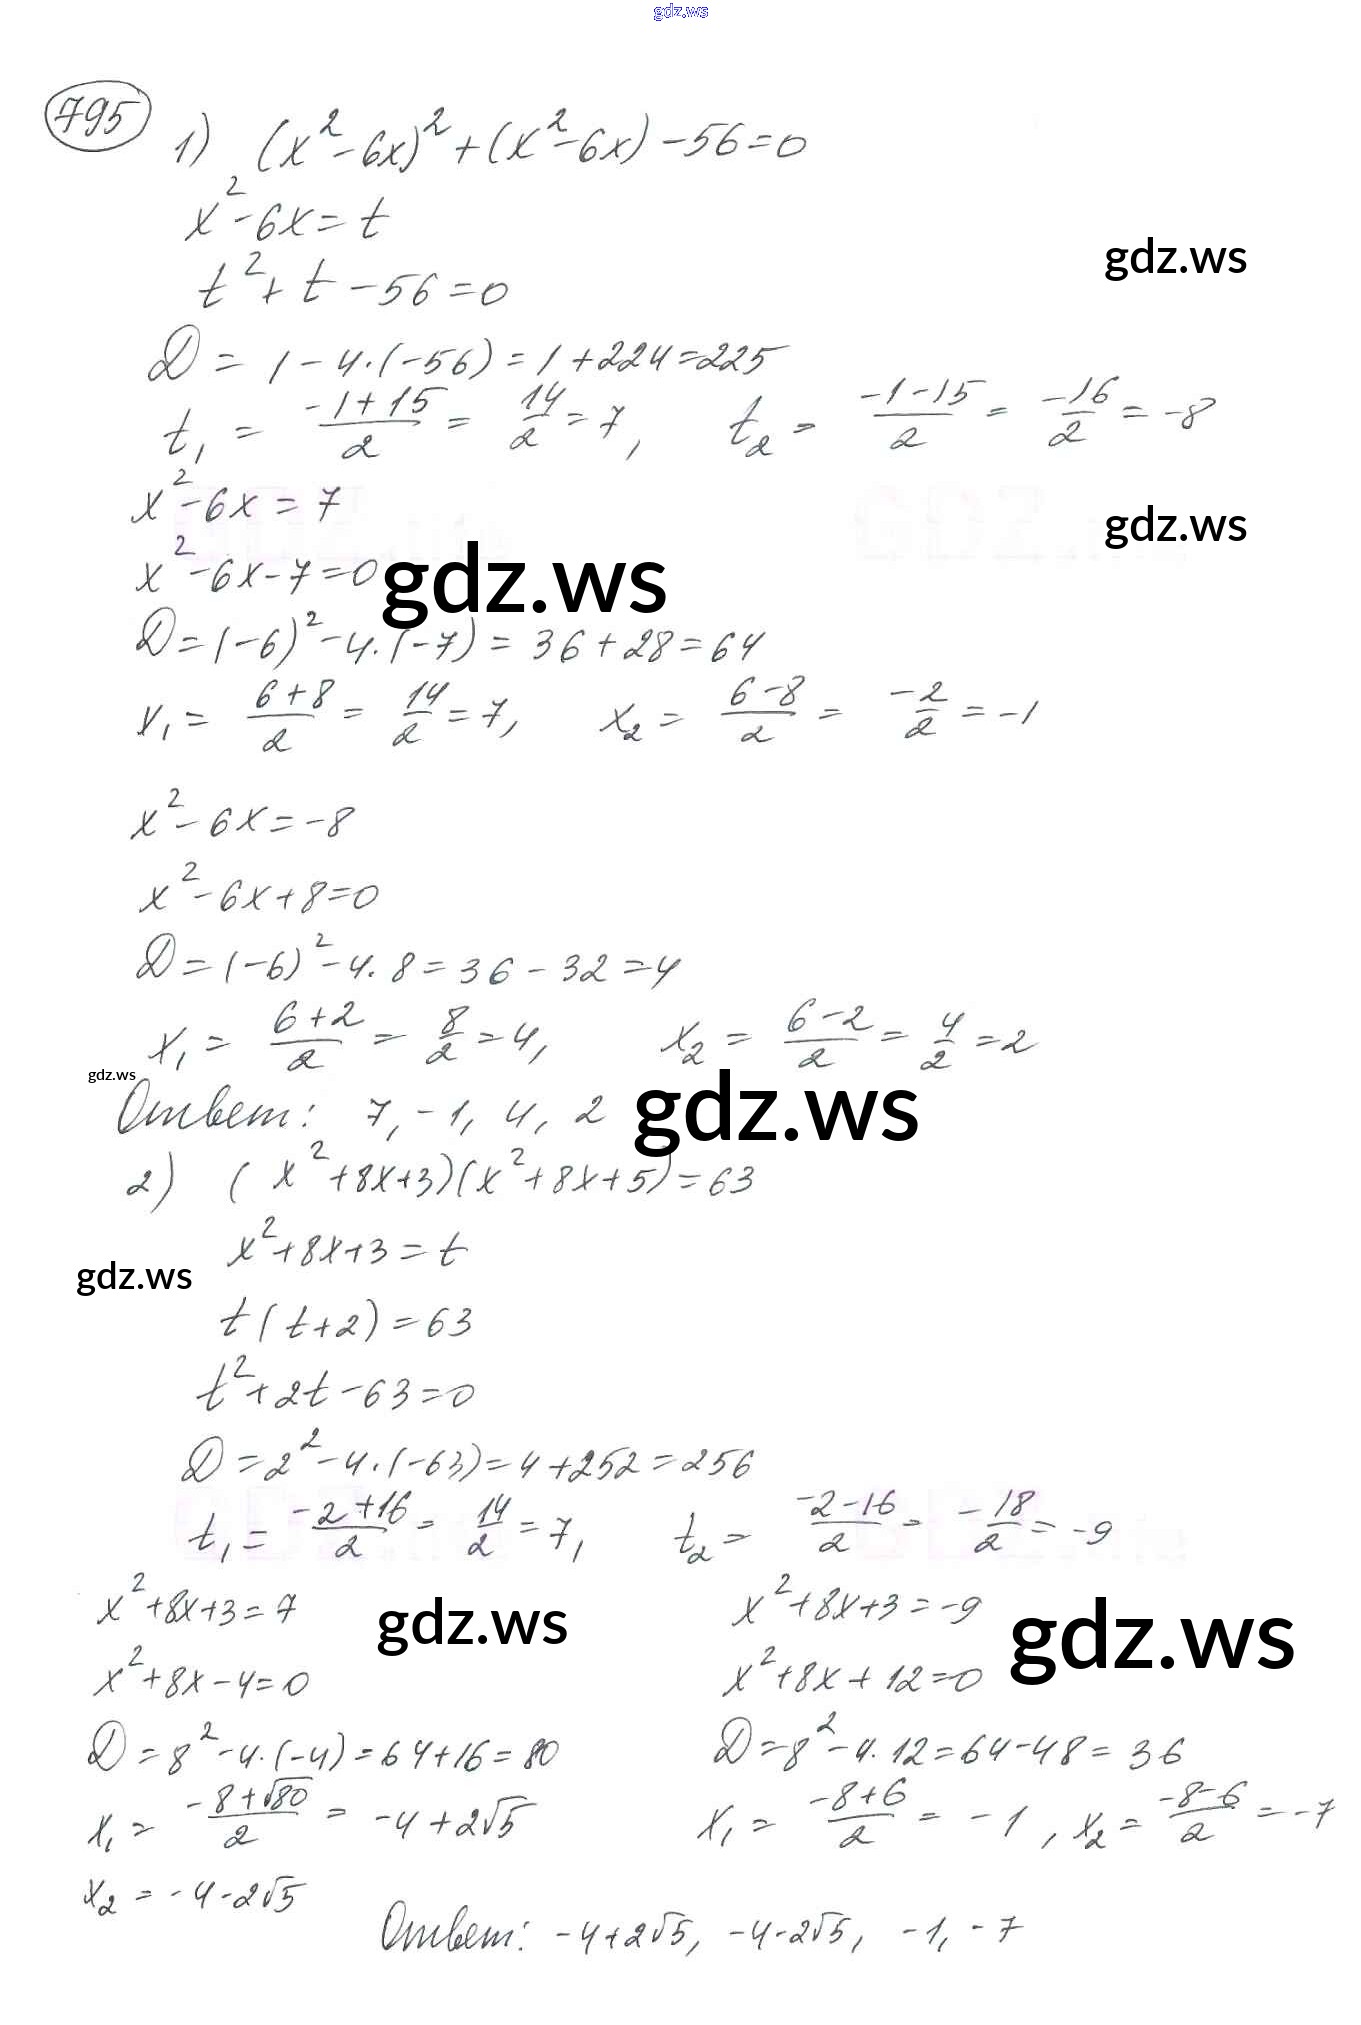 gdz.ws
795
1) (x²-6x)²+(x²-6x)-56=0
x²-6x=t
gdz.ws
t²+t-56=0
D=1-4·(-56)=1+224=225
t₁ = (-1+15)/2 = 14/2 = 7, t₂ = (-1-15)/2 = -16/2 = -8
x²-6x=7
gdz.ws
x²-6x-7=0
gdz.ws
D=(-6)²-4·(-7)=36+28=64
x₁ = (6+8)/2 = 14/2 = 7, x₂ = (6-8)/2 = -2/2 = -1
x²-6x=-8
x²-6x+8=0
D=(-6)²-4·8=36-32=4
x₁ = (6+2)/2 = 8/2 = 4, x₂ = (6-2)/2 = 4/2 = 2
gdz.ws
Ответ: 7, -1, 4, 2
gdz.ws
2) (x²+8x+3)(x²+8x+5)=63
x²+8x+3=t
gdz.ws
t(t+2)=63
t²+2t-63=0
D=2²-4·(-63)=4+252=256
t₁ = (-2+16)/2 = 14/2 = 7, t₂ = (-2-16)/2 = -18/2 = -9
x²+8x+3=7 x²+8x+3=-9
gdz.ws gdz.ws
x²+8x-4=0 x²+8x+12=0
D=8²-4·(-4)=64+16=80 D=8²-4·12=64-48=36
x₁ = (-8+√80)/2 = -4+2√5 x₁ = (-8+6)/2 = -1, x₂ = (-8-6)/2 = -7
x₂ = -4-2√5
Ответ: -4+2√5, -4-2√5, -1, -7